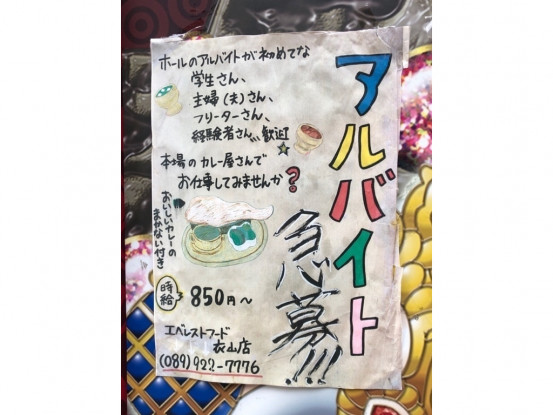 アルバイト
急募!!!
ホールのアルバイトが初めてな
学生さん、
主婦(夫)さん、
フリーターさん、
経験者さん、歓迎
本場のカレー屋さんで
お仕事してみませんか?
おいしいカレーの
まかない付き
時給
850円~
エベレストフード
衣山店
(089)922-7776